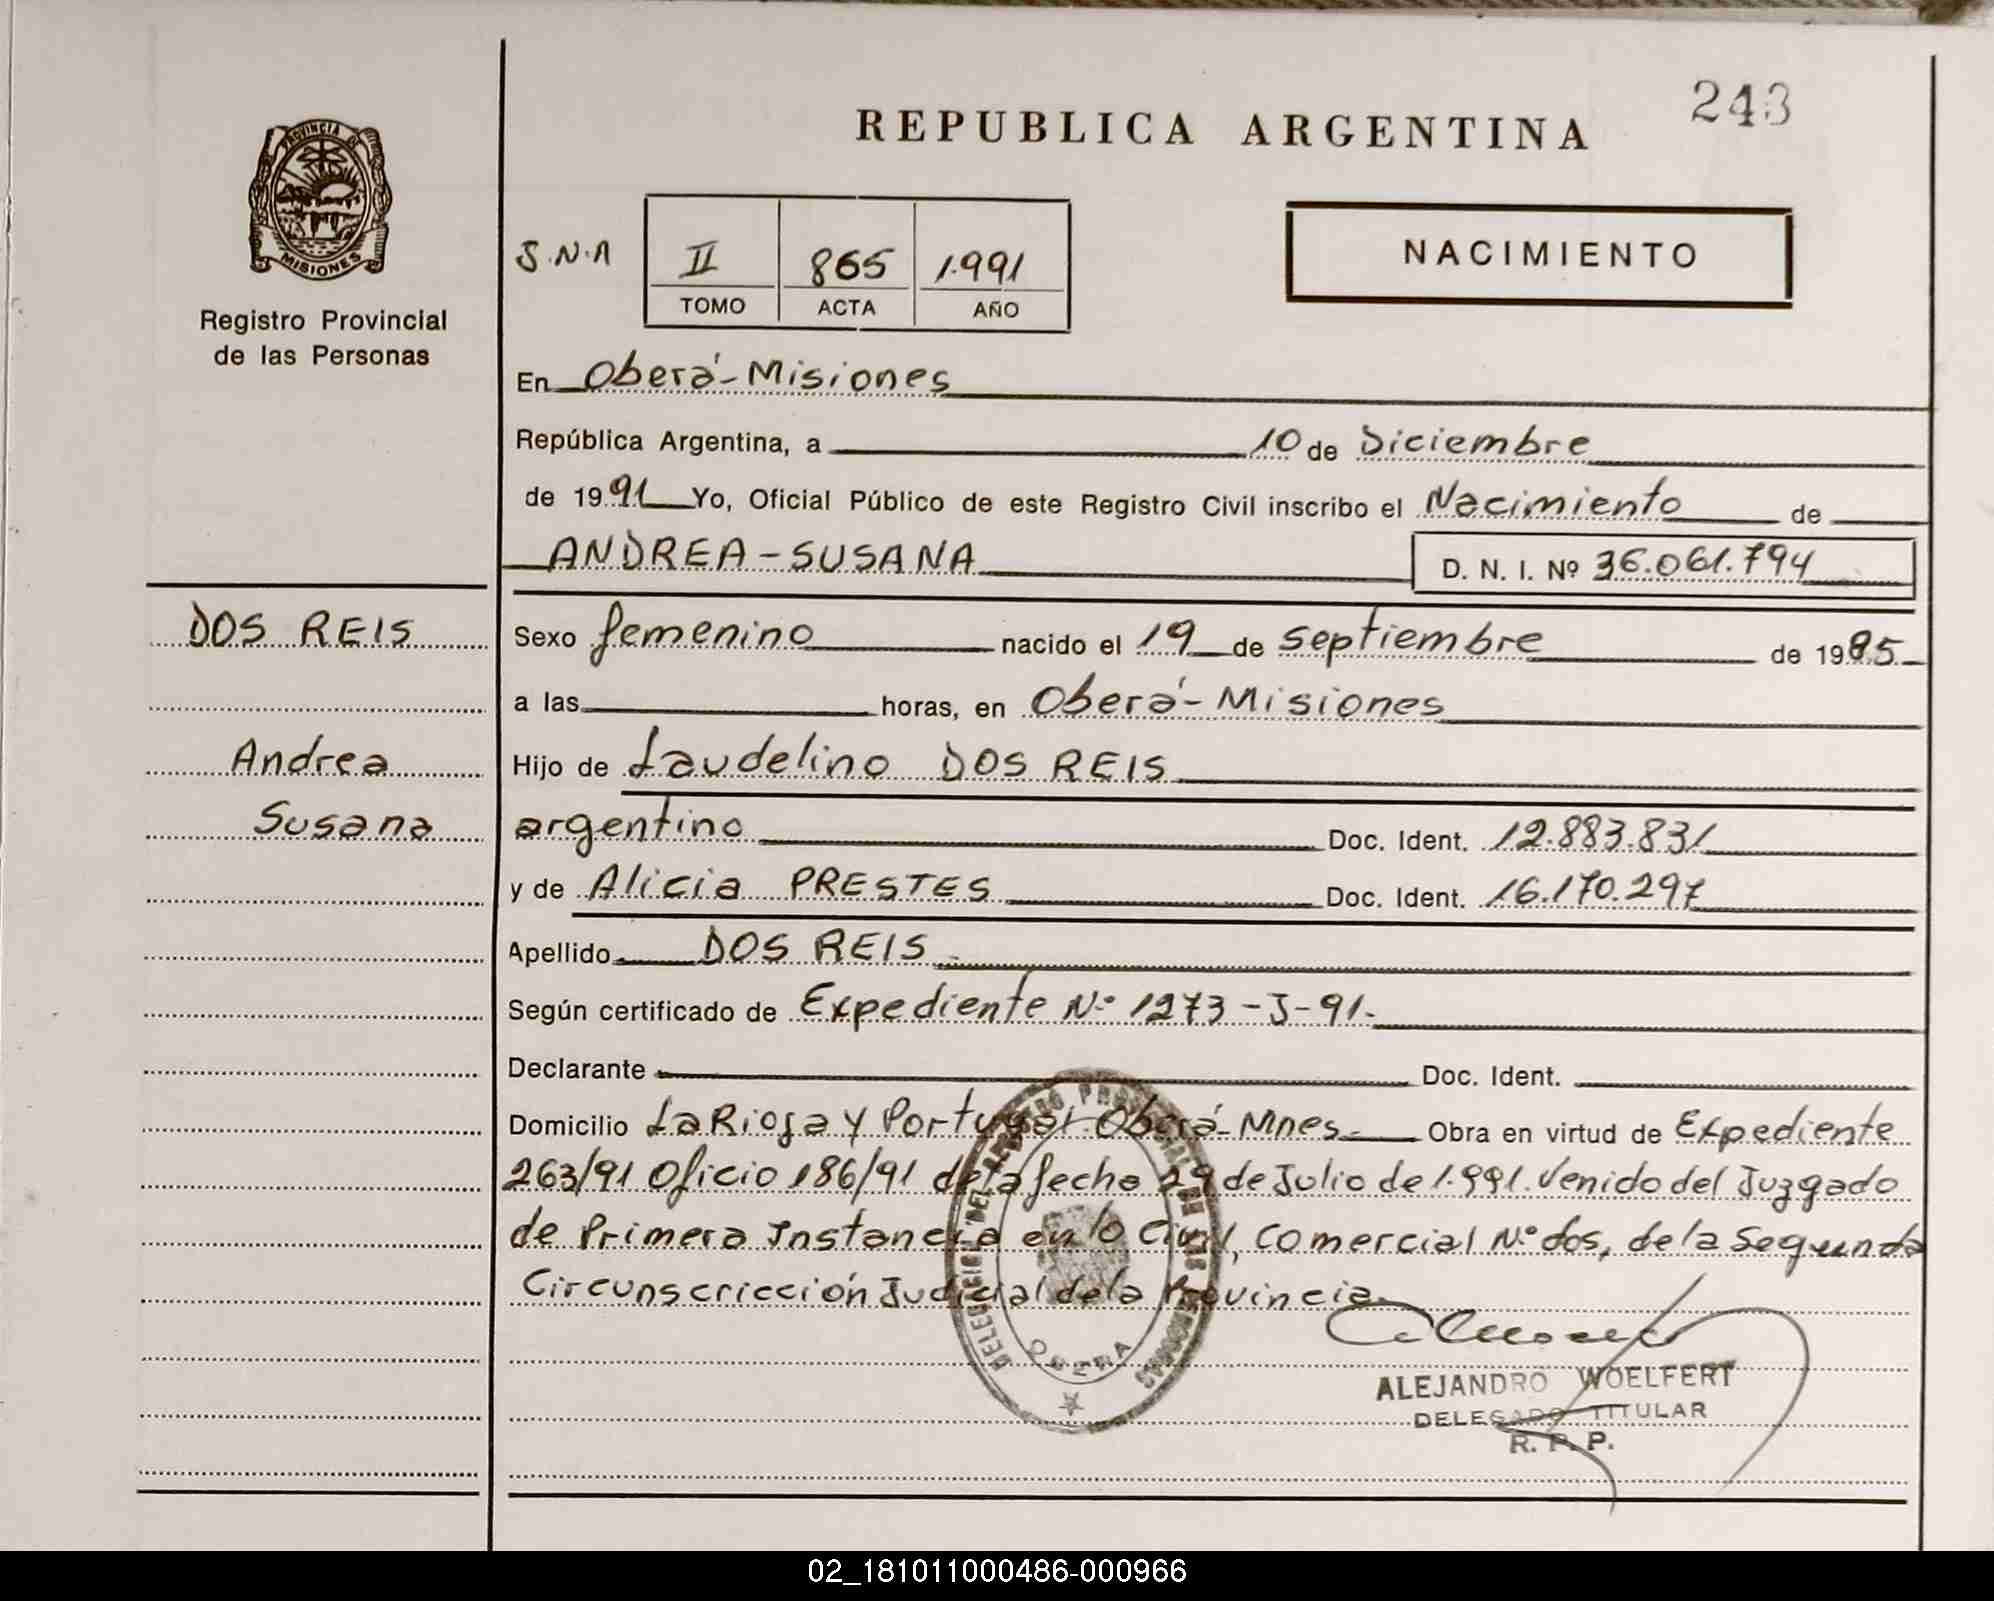 243
REPUBLICA ARGENTINA
PROVINCIA DE
MISIONES
Registro Provincial
de las Personas
NACIMIENTO
J.N.A
II 865 1.991
TOMO ACTA AÑO
En Oberá-Misiones
República Argentina, a 10 de Diciembre
de 1991 Yo, Oficial Público de este Registro Civil inscribo el Nacimiento de
ANDREA-SUSANA D. N. I. Nº 36.061.794
DOS REIS
Andrea
Susana
Sexo femenino nacido el 19 de septiembre de 1985
a las horas, en Oberá-Misiones
Hijo de Laudelino DOS REIS
argentino Doc. Ident. 12.883.831
y de Alicia PRESTES Doc. Ident. 16.170.297
Apellido DOS REIS
Según certificado de Expediente Nº 1273-J-91.
Declarante Doc. Ident.
Domicilio La Rioja y Portugal-Oberá-Mnes. Obra en virtud de Expediente
263/91 Oficio 186/91 de la fecha 29 de Julio de 1.991. Venido del Juzgado
de Primera Instancia en lo Civil, Comercial Nº dos, de la Segunda
Circunscricción Judicial de la Provincia.
DELEGACION DEL REGISTRO PROVINCIAL DE LAS PERSONAS
OBERA
ALEJANDRO WOELFERT
DELEGADO TITULAR
R. P. P.
02_181011000486-000966